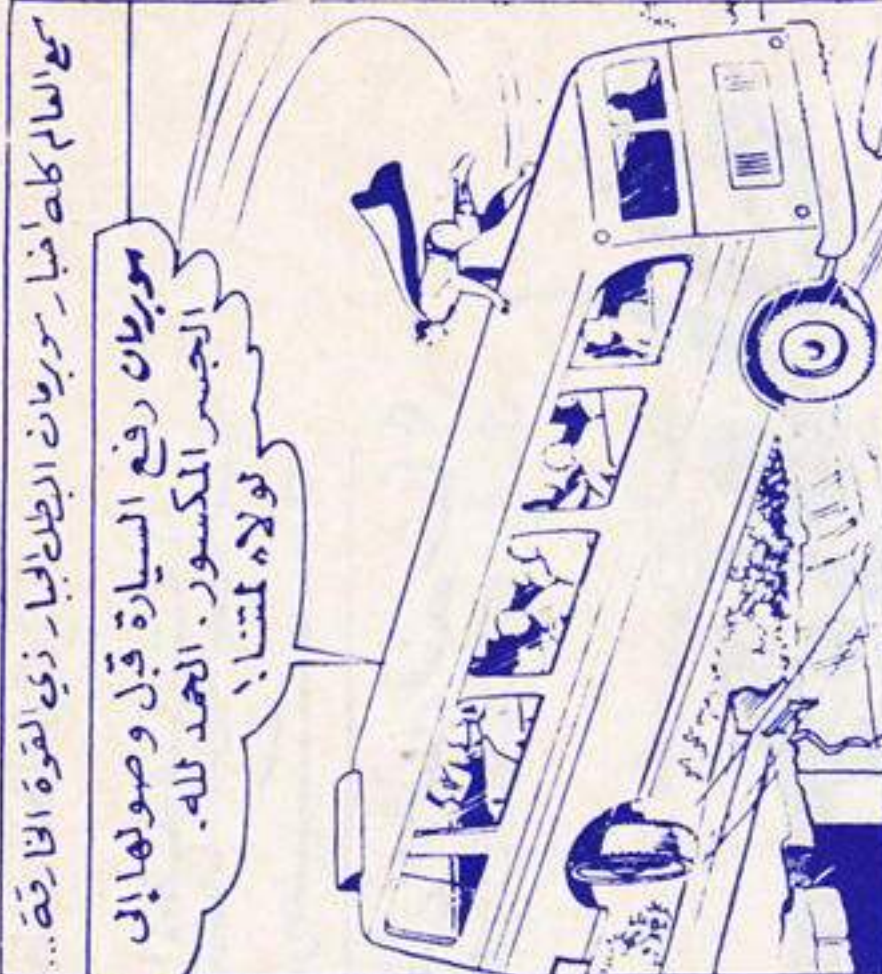 سمع العالم كله اخبار سوبرمان البطل الجبار ذي القوة الخارقة...
سوبرمان رفع السيارة قبل وصولها إلى
الجسر المكسور. الحمد لله.
لولاه لمتنا!